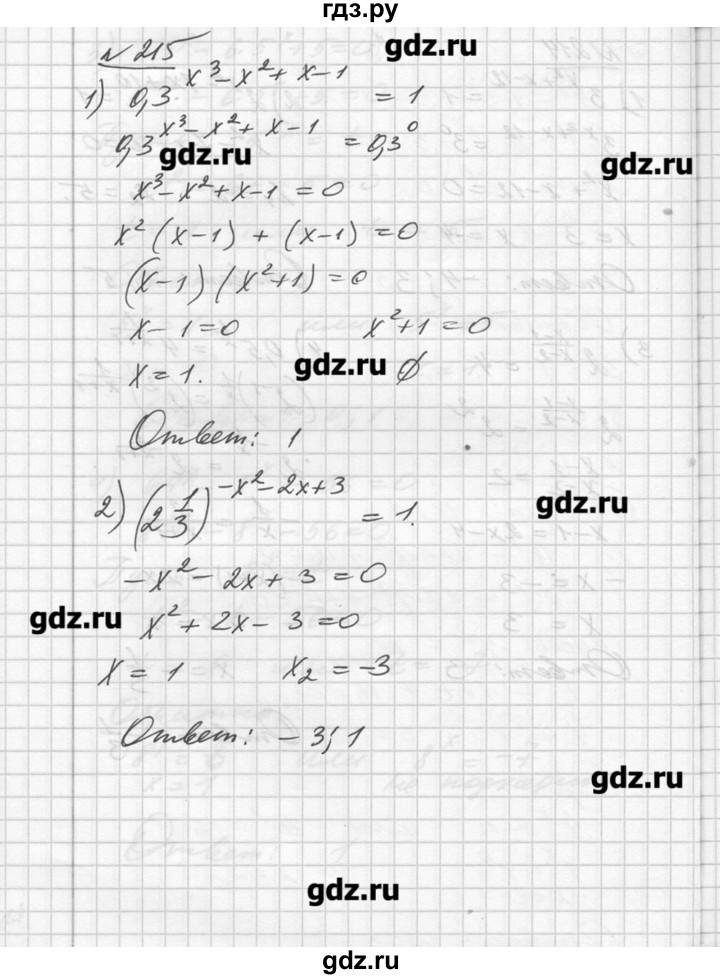 гдз.ру
№ 215
gdz.ru
1) 0,3^(x³ - x² + x - 1) = 1
0,3^(x³ - x² + x - 1) = 0,3⁰
gdz.ru
gdz.ru
x³ - x² + x - 1 = 0
x² (x - 1) + (x - 1) = 0
(x - 1) (x² + 1) = 0
x - 1 = 0 x² + 1 = 0
x = 1. ∅
gdz.ru
Ответ: 1
2) (2 1/3)^(-x² - 2x + 3) = 1.
gdz.ru
-x² - 2x + 3 = 0
x² + 2x - 3 = 0
gdz.ru
x = 1 x₂ = -3
Ответ: -3; 1
gdz.ru
gdz.ru
gdz.ru